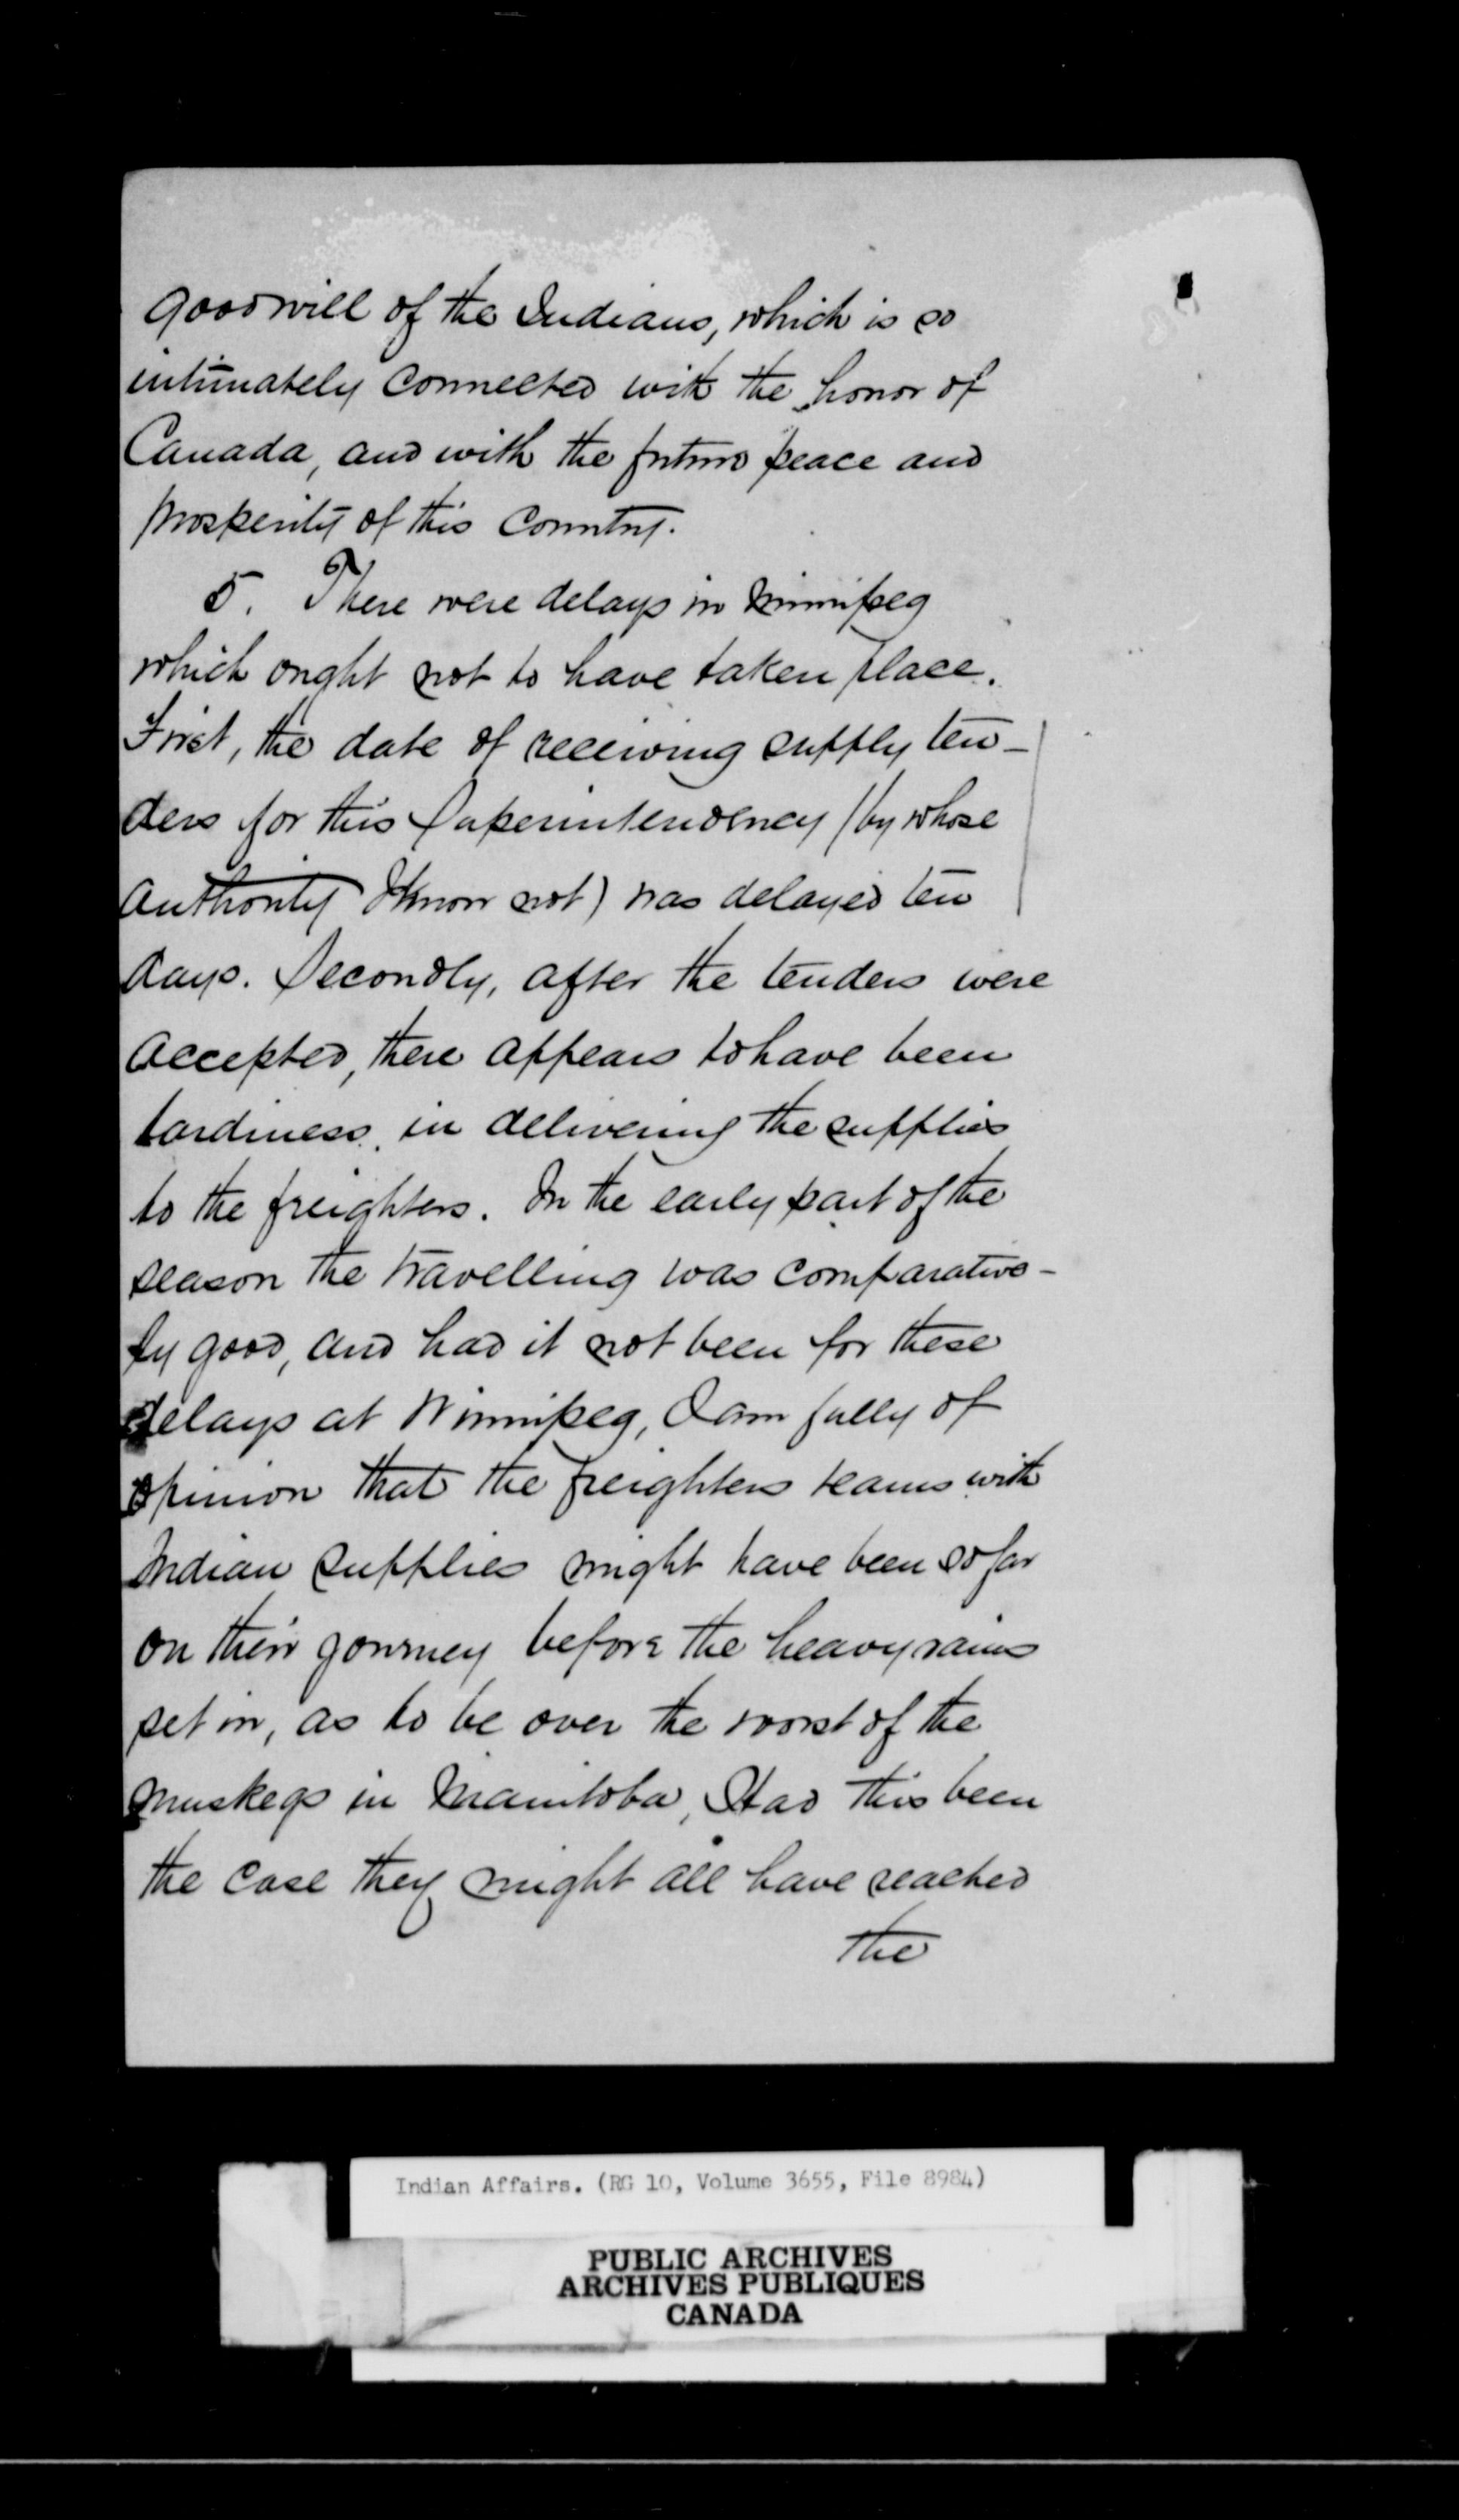 goodwill of the Indians, which is so
intimately connected with the honor of
Canada, and with the future peace and
prosperity of this Country.
5. There were delays in Winnipeg
which ought not to have taken place.
First, the date of receiving supply ten-
ders for this Superintendency (by whose
authority I know not) was delayed ten
days. Secondly, after the tenders were
accepted, there appears to have been
tardiness, in delivering the supplies
to the freighters. In the early part of the
season the travelling was comparative-
ly good, and had it not been for these
delays at Winnipeg, I am fully of
opinion that the freighters teams with
Indian supplies might have been so far
on their journey before the heavy rains
set in, as to be over the worst of the
muskegs in Manitoba, Had this been
the case they might all have reached
the
Indian Affairs. (RG 10, Volume 3655, File 8984)
PUBLIC ARCHIVES
ARCHIVES PUBLIQUES
CANADA